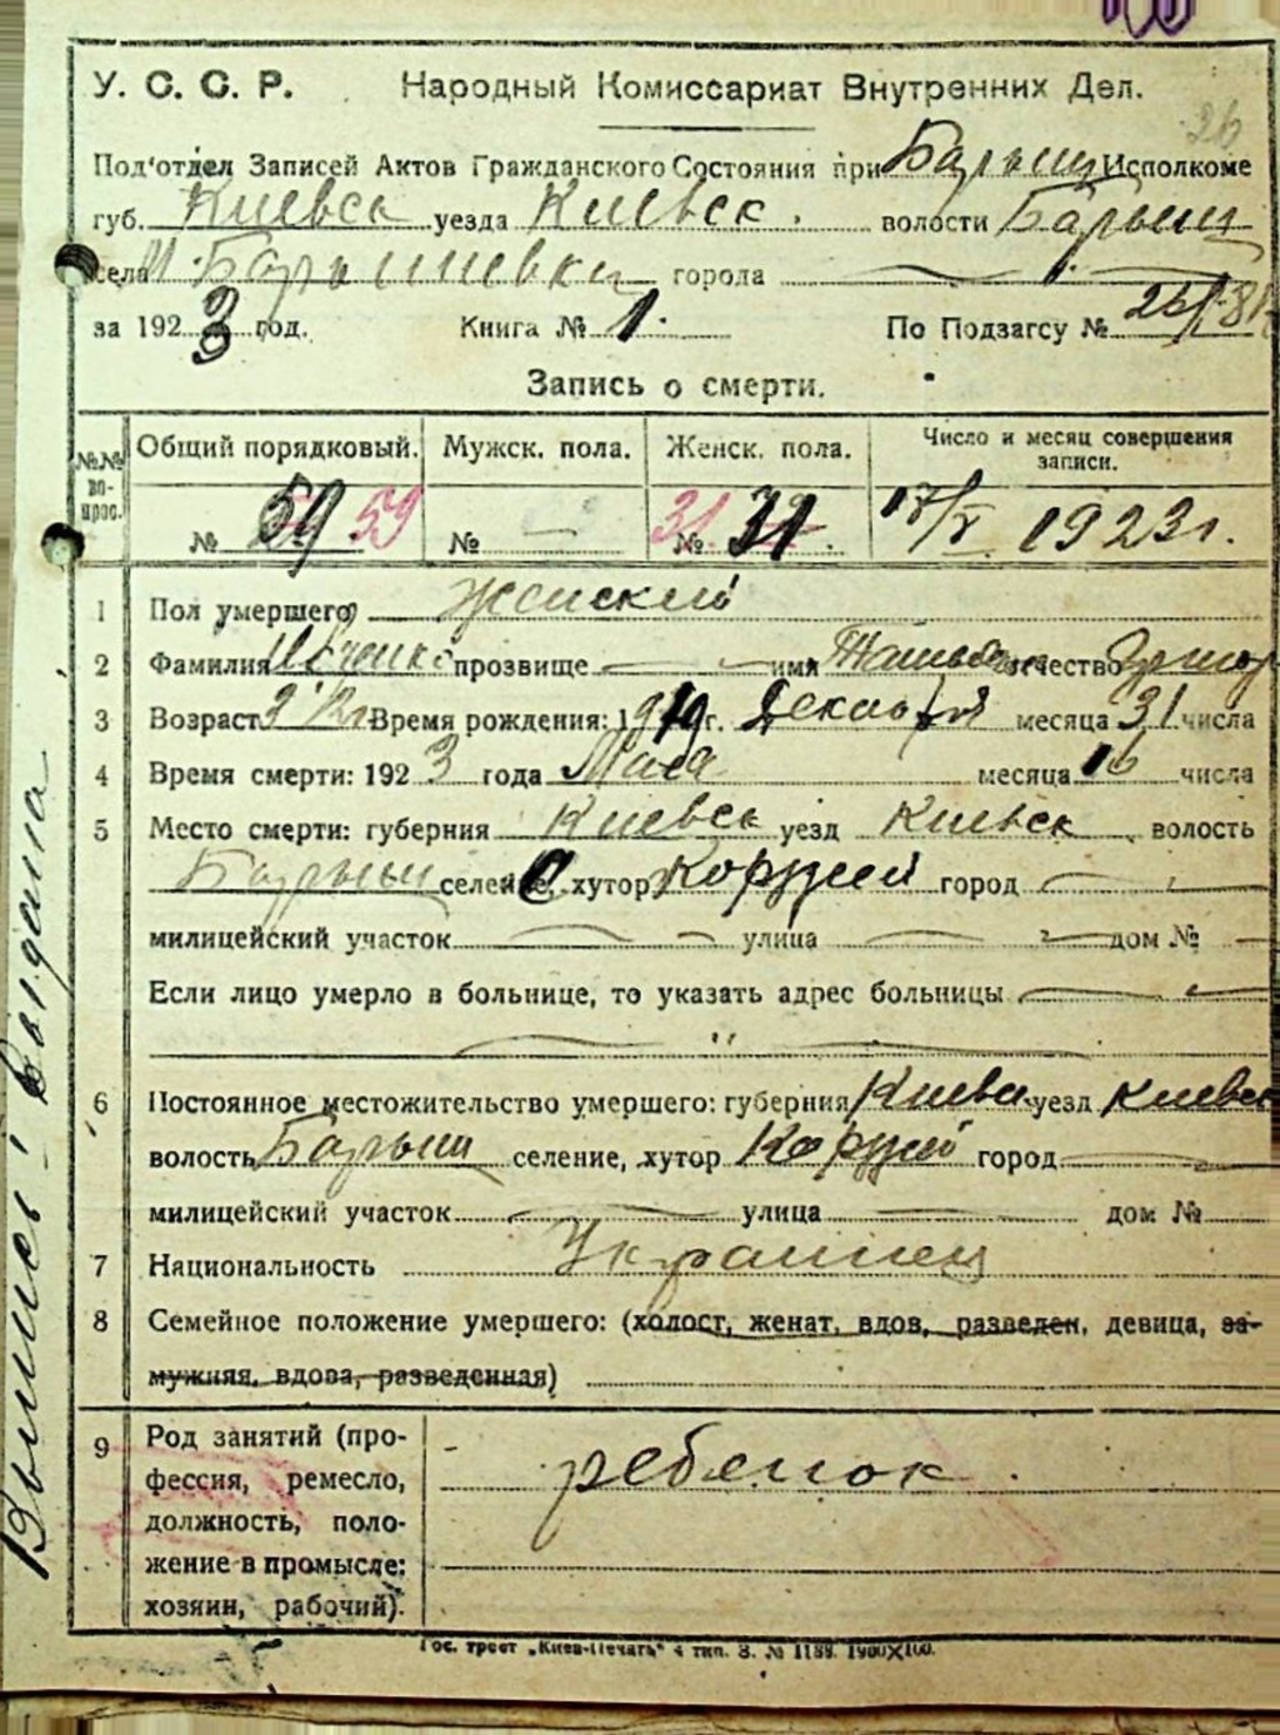 26
У. С. С. Р. Народный Комиссариат Внутренних Дел.
Под'отдел Записей Актов Гражданского Состояния при Барыш Исполкоме
губ. Киевск уезда Киевск. волости Барыш
села М. Барышевки города
за 1923 год. Книга № 1. По Подзагсу №
Запись о смерти.
№№ вопрос. Общий порядковый. Мужск. пола. Женск. пола. Число и месяц совершения записи.
№ 59 59 № — 31 № 31. 17/V 1923г.
1 Пол умершего Женский
2 Фамилия Ивченко прозвище — имя отчество Григор
3 Возраст Время рождения: 1919г. Декабря месяца 31 числа
4 Время смерти: 1923 года Мая месяца 16 числа
5 Место смерти: губерния Киевск уезд Киевск волость
Барыш селение, хутор город —
милицейский участок — улица — дом № —
Если лицо умерло в больнице, то указать адрес больницы —
— " —
6 Постоянное местожительство умершего: губерния Киевск уезд Киевск
волость Барыш селение, хутор город —
милицейский участок — улица — дом №
7 Национальность Украинец
8 Семейное положение умершего: (холост, женат, вдов, разведен, девица, за-
мужняя, вдова, разведенная)
9 Род занятий (про-
фессия, ремесло,
должность, поло-
жение в промысле:
хозяин, рабочий).
- ребенок.
Гос. трест „Киев-Печать" 4 тип. З. № 1189. 1900X100.
Выпись выдана